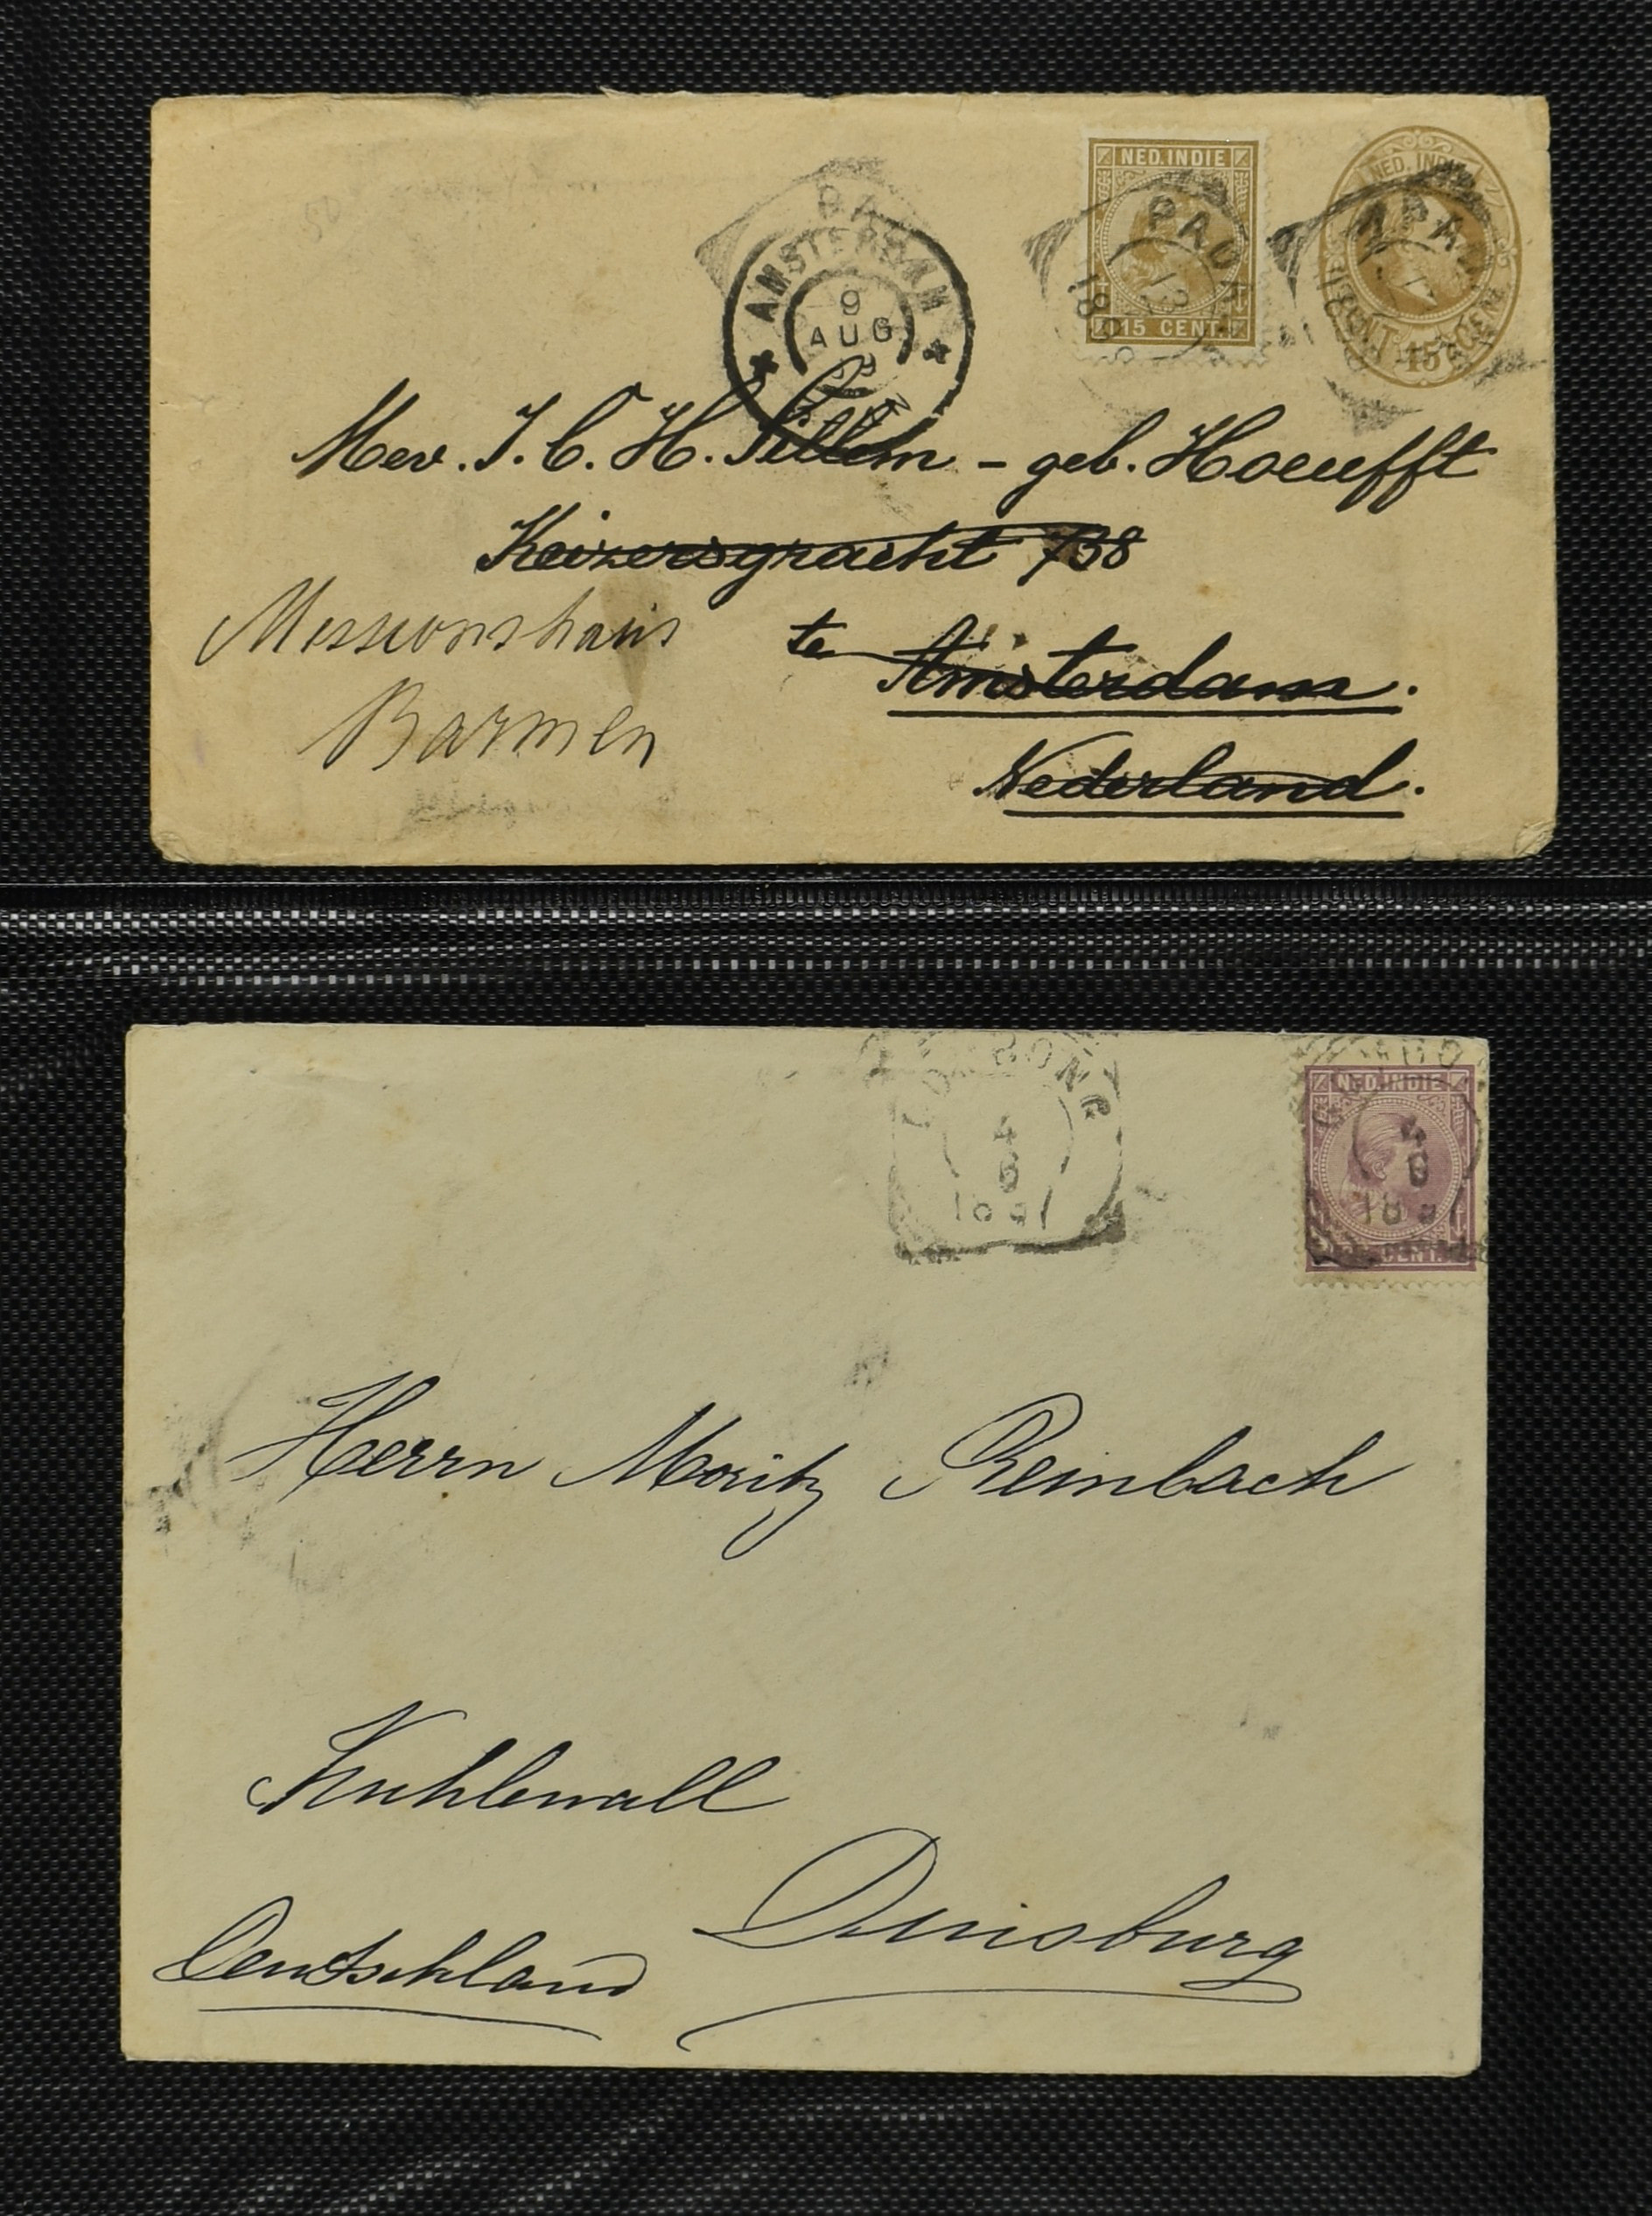 NED. INDIE
15 CENT.
NED. INDIE
15
AMSTERDAM
9
AUG
Mev. J. C. H. Sillem - geb. Hoeufft
Keizersgracht 738
te Amsterdam.
Nederland.
Missionshaus
Barmen
4
6
NED. INDIE
CENT.
Herrn Moritz Reimbach
Kuhlenwall
Duisburg
Deutschland